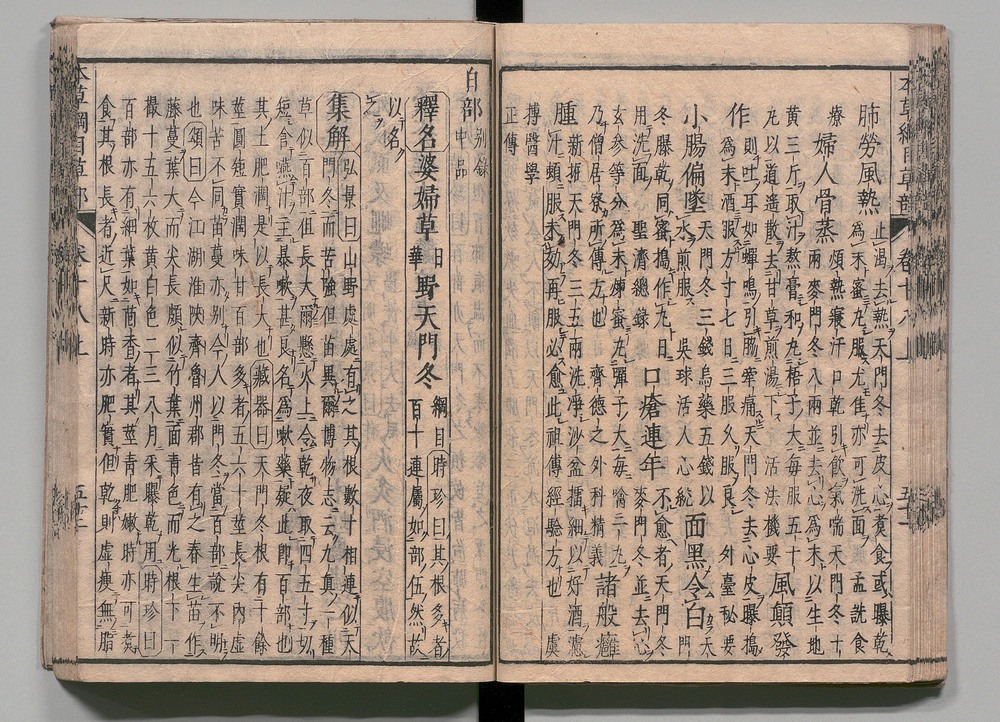 本草綱目草部 卷十八上
肺勞風熱 止渴去熱天門冬去皮心煑食或曝乾
為末蜜丸服尤佳亦可洗面 孟詵食
療 婦人骨蒸 煩熱寢汗口乾引飲氣喘天門冬十
兩麥門冬八兩並去心為末以生地
黃三斤取汁熬膏和丸梧子大每服五十
丸以逍遙散去甘草煎湯下 活法機要 風顛發
作 則吐耳如蟬鳴引脇牽痛天門冬去心皮曝搗
為末酒服方寸七日三服久服良 外臺秘要
小腸偏墜 天門冬三錢烏藥五錢以
水煎服 吳球活人心統 面黑令白 天門
冬曝乾同蜜搗作丸日
洗面 聖濟總錄 口瘡連年 不愈者天門冬
麥門冬並去心
玄參等分為末煉蜜丸彈子大每噙三丸
乃僧居寮所傳方也 齊德之外科精義 諸般癰
腫 新掘天門冬三五兩洗淨沙盆擂細以好酒濾
汁頓服未效再服必愈此祖傳經驗方也 虞
摶醫學
正傳
百部 別錄
中品
釋名婆婦草 日
華 野天門冬 綱目 時珍曰其根多者
百十連屬如部伍然故
以名
之
集解 弘景曰山野處處有之其根數十相連似天
門冬而苦強但苗異爾博物志云九真一種
草似百部但長大爾懸火上令乾夜取四五寸切
短含嚥汁主暴嗽甚良名為嗽藥疑此即百部也
其土肥潤是以長大也藏器曰天門冬根有十餘
莖圓短實潤味甘百部多者五六十莖長尖內虛
味苦不同苗蔓亦別今人以門冬當百部說不明
也頌曰今江湖淮陝齊魯州郡皆有之春生苗作
藤蔓葉大而尖長頗似竹葉面青色而光根下一
撮十五六枚黃白色二三八月采曝乾用時珍曰
百部亦有細葉如茴香者其莖青肥嫩時亦可煑
食其根長者近尺新時亦肥實但乾則虛瘦無脂
本草綱目草部 卷十八上